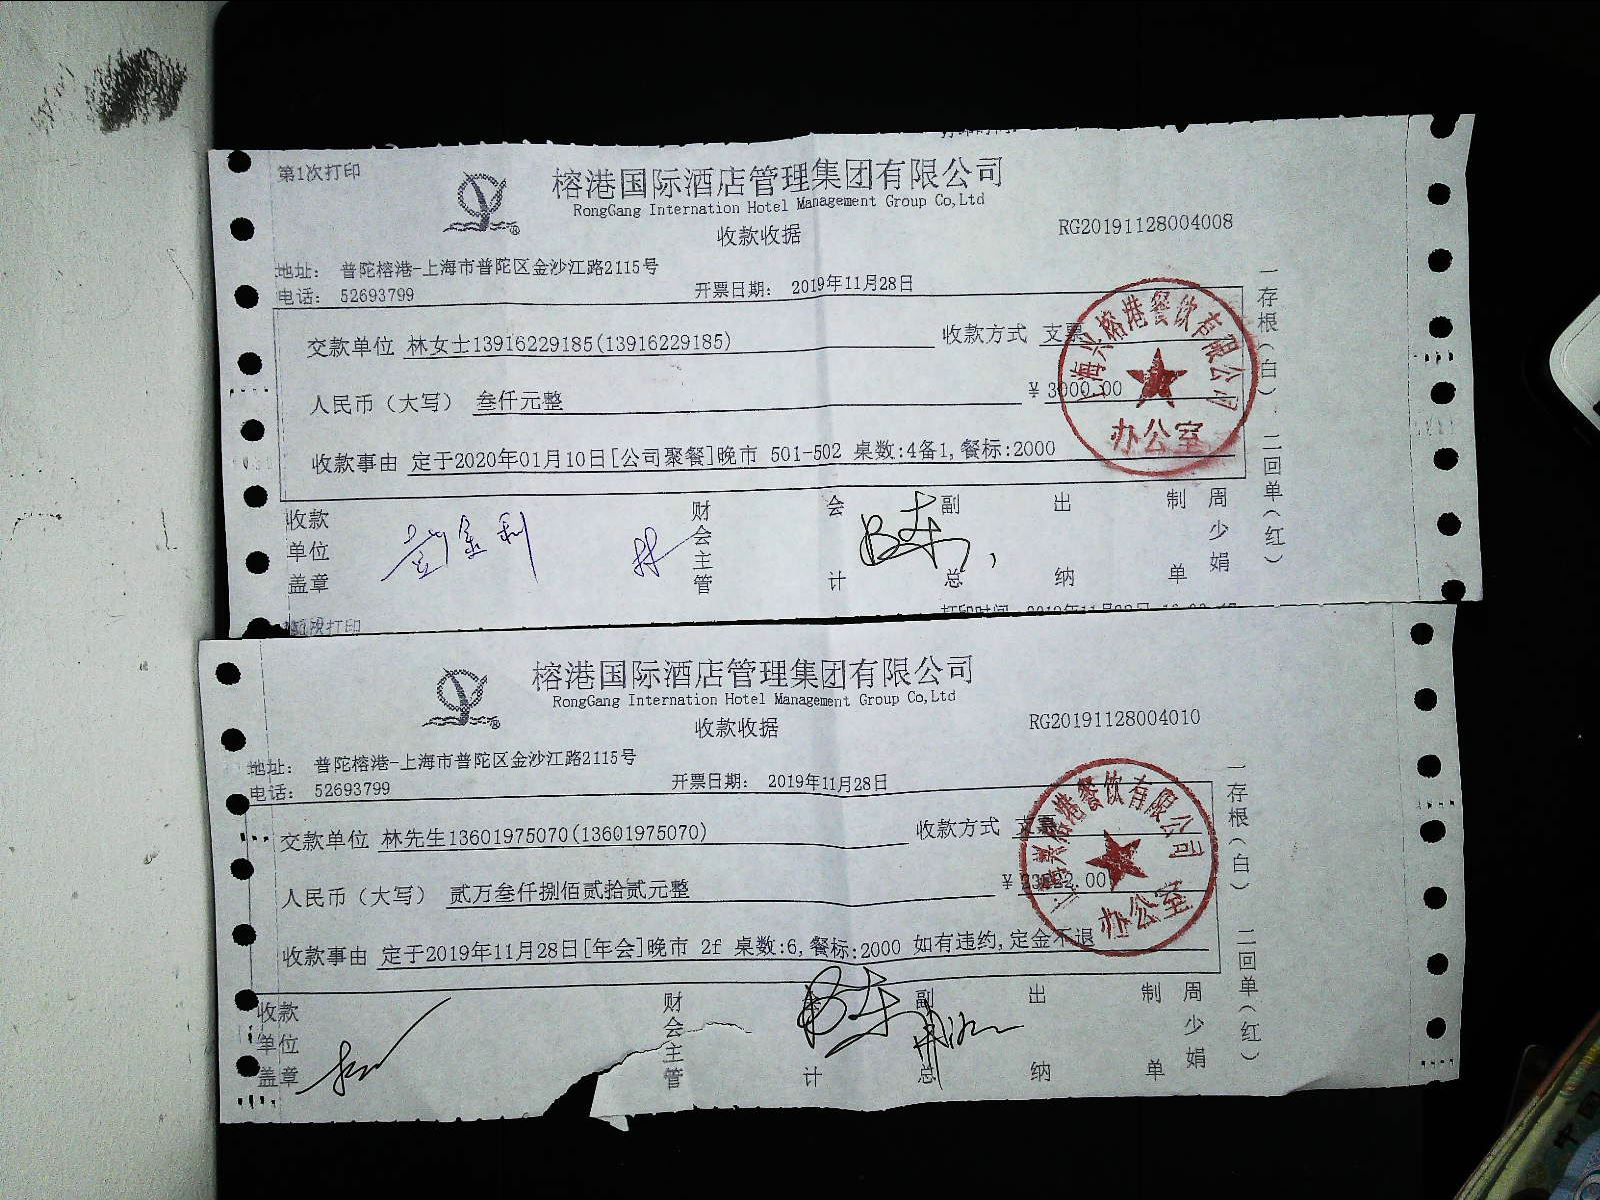 第1次打印
榕港国际酒店管理集团有限公司
RongGang Internation Hotel Management Group Co,Ltd
收款收据
RG20191128004008
地址: 普陀榕港-上海市普陀区金沙江路2115号
电话: 52693799
开票日期: 2019年11月28日
交款单位 林女士13916229185(13916229185)
收款方式 支票
人民币(大写) 叁仟元整
¥ 3000.00
收款事由 定于2020年01月10日[公司聚餐]晚市 501-502 桌数:4备1,餐标:2000
上海兴榕港餐饮有限公司
办公室
一存根(白) 二回单(红)
收款单位盖章
财会主管
会计
副总
出纳
制单
周少娟
打印
榕港国际酒店管理集团有限公司
RongGang Internation Hotel Management Group Co,Ltd
收款收据
RG20191128004010
地址: 普陀榕港-上海市普陀区金沙江路2115号
电话: 52693799
开票日期: 2019年11月28日
交款单位 林先生13601975070(13601975070)
收款方式 支票
人民币(大写) 贰万叁仟捌佰贰拾贰元整
¥ 23822.00
收款事由 定于2019年11月28日[年会]晚市 2f 桌数:6,餐标:2000 如有违约,定金不退
上海兴榕港餐饮有限公司
办公室
一存根(白) 二回单(红)
收款单位盖章
财会主管
会计
副总
出纳
制单
周少娟